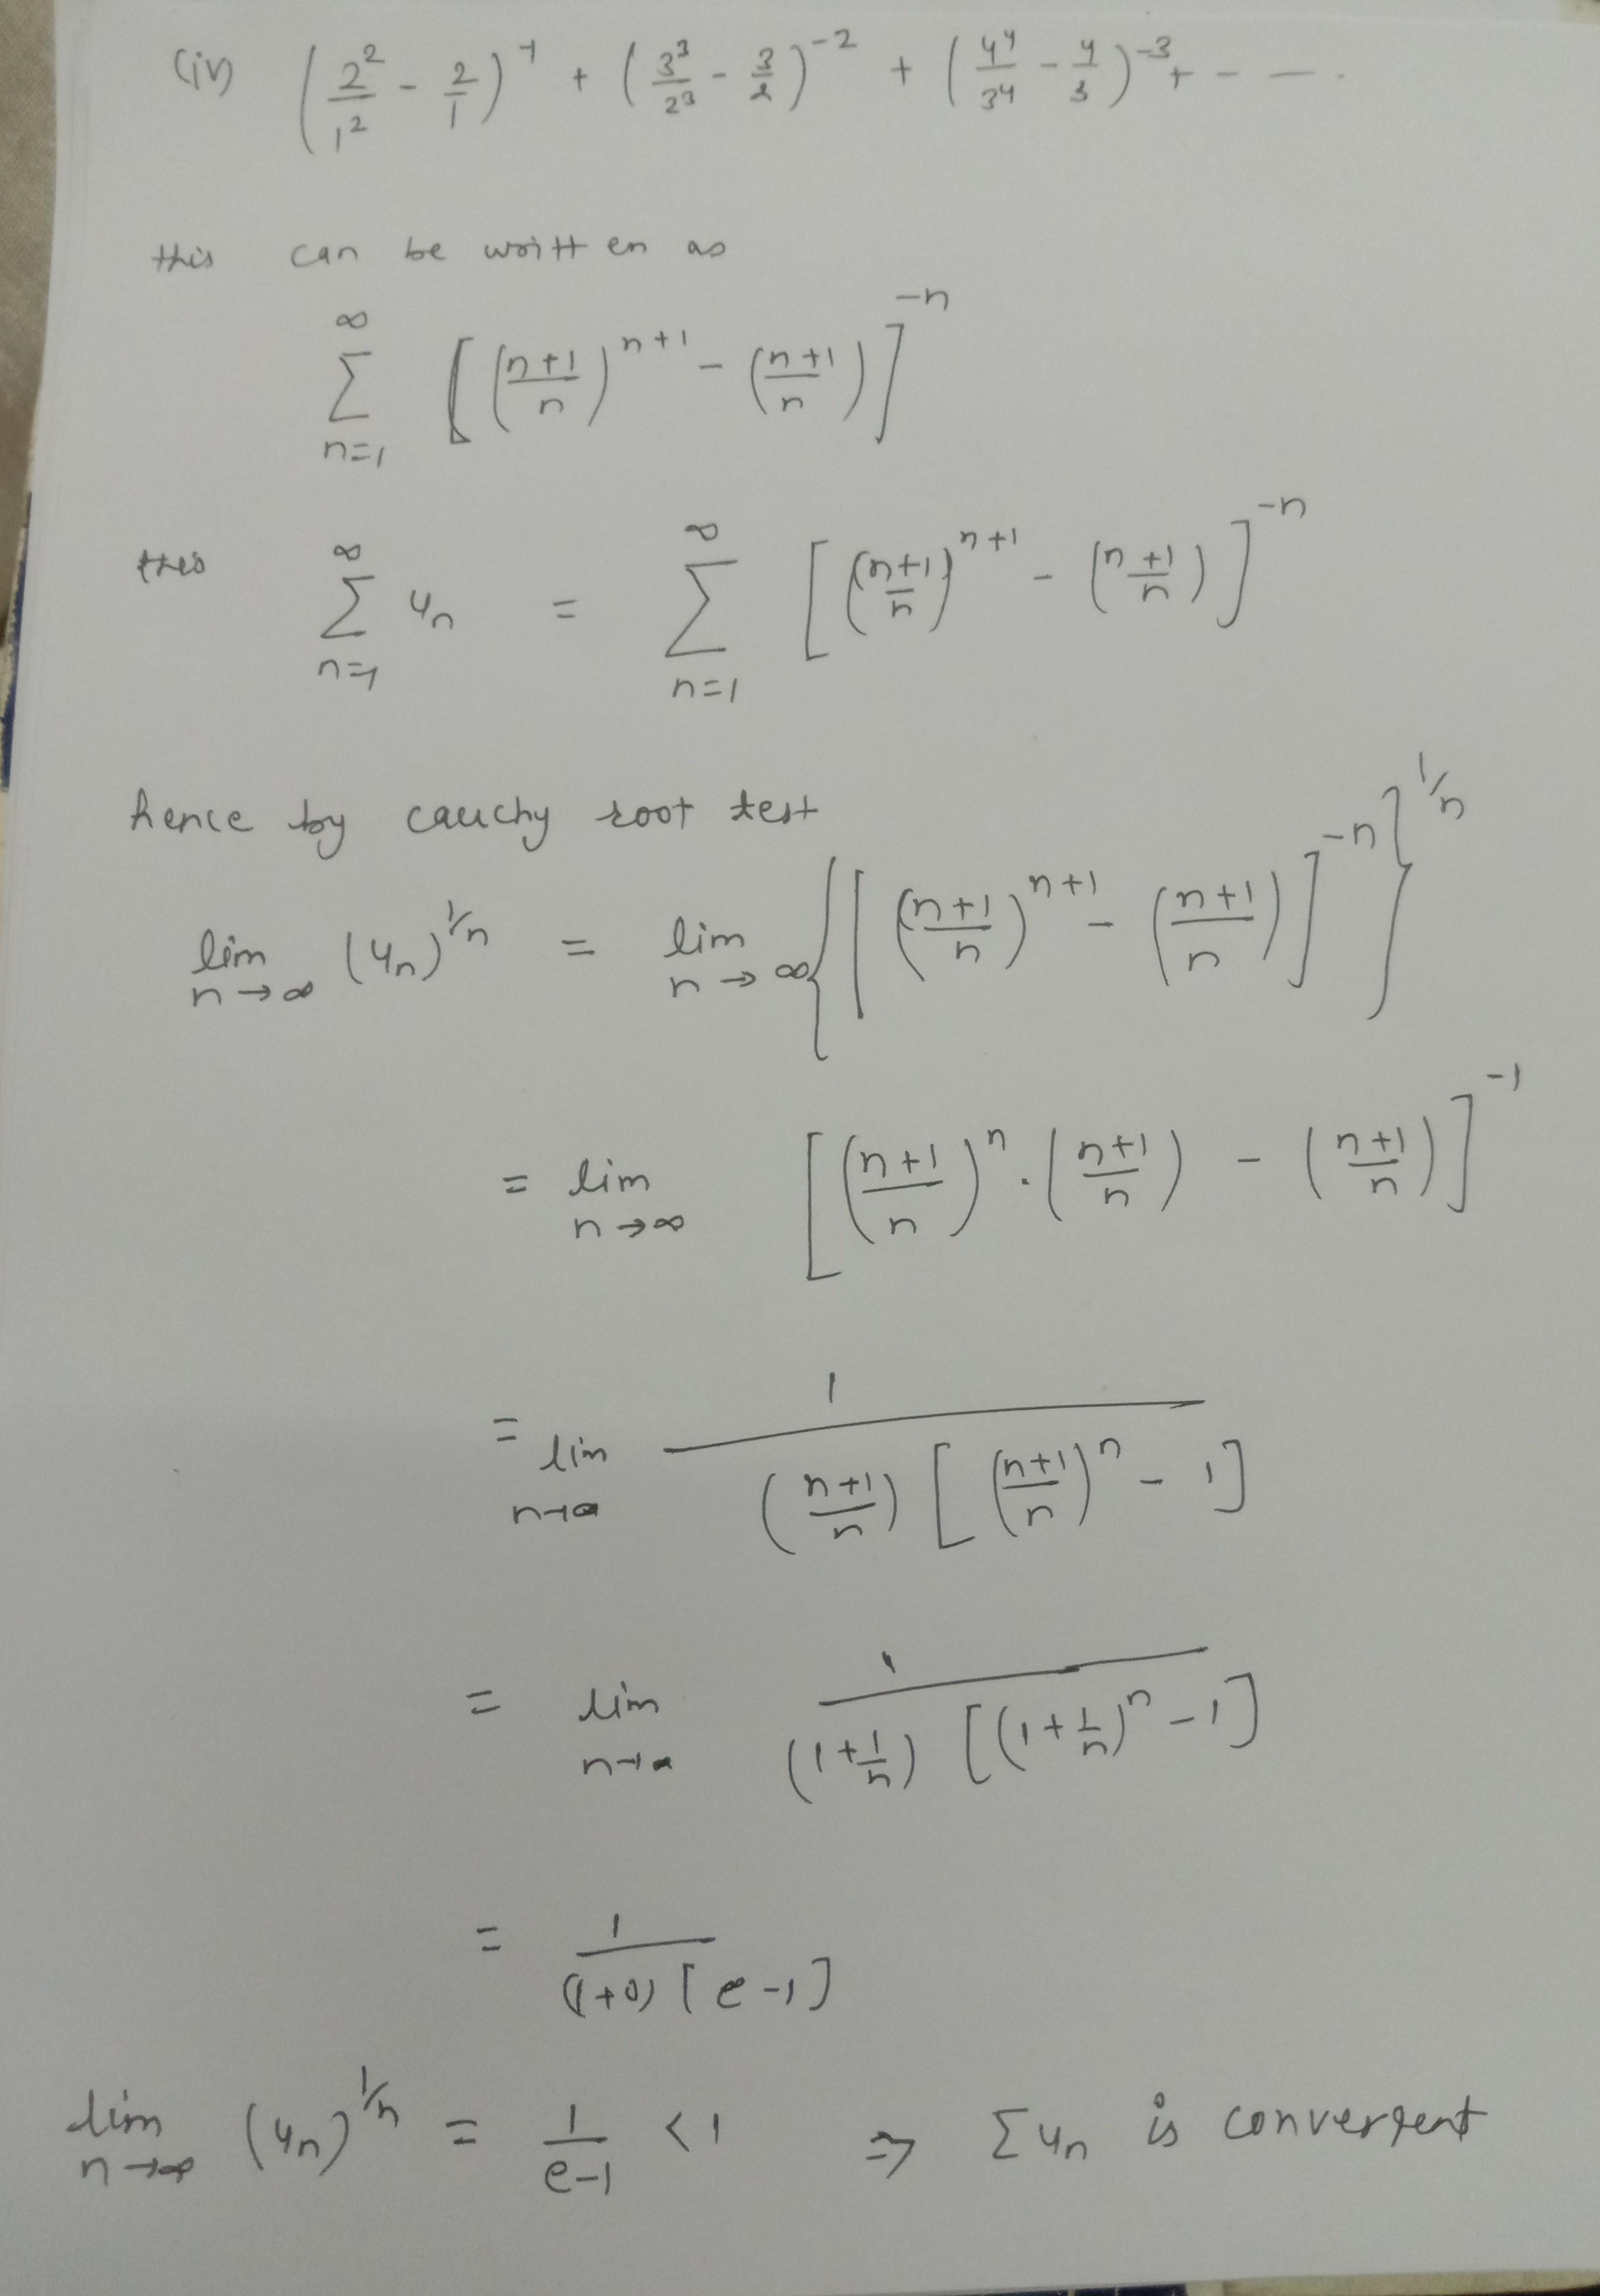 (iv) (2²/1² - 2/1)⁻¹ + (3³/2³ - 3/2)⁻² + (4⁴/3⁴ - 4/3)⁻³ + - - - .
this can be written as
∞∑n=1 [((n+1)/n)ⁿ⁺¹ - ((n+1)/n)]⁻ⁿ
this ∞∑n=1 uₙ = ∞∑n=1 [((n+1)/n)ⁿ⁺¹ - ((n+1)/n)]⁻ⁿ
hence by cauchy root test
lim n→∞ (uₙ)^1/n = lim n→∞ {[((n+1)/n)ⁿ⁺¹ - ((n+1)/n)]⁻ⁿ}^1/n
= lim n→∞ [((n+1)/n)ⁿ · ((n+1)/n) - ((n+1)/n)]⁻¹
= lim n→∞ 1/(((n+1)/n) [((n+1)/n)ⁿ - 1])
= lim n→∞ 1/((1+1/n) [(1+1/n)ⁿ - 1])
= 1/((1+0) [e-1])
lim n→∞ (uₙ)^1/n = 1/(e-1) < 1 ⇒ Σuₙ is convergent